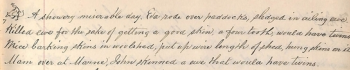 A showery miserable day, Ev. rode over paddocks, pledged in ailing ewe
Killed ewe for the sake of getting a good skin, a four tooth, would have twins
Mice barking skins in woolshed, put up wire length of shed, hung skins on it
Mam over at Maurice, John skinned a ewe that would have twins.